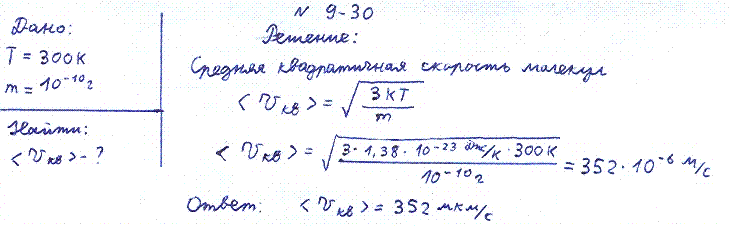 N 9-30
Дано:
T = 300K
m = 10⁻¹⁰г
Найти:
<Vкв> - ?
Решение:
Средняя квадратичная скорость молекул
<Vкв> = √(3kT/m)
<Vкв> = √(3·1,38·10⁻²³ Дж/К · 300К / 10⁻¹⁰г) = 352·10⁻⁶ м/с
Ответ: <Vкв> = 352 мкм/с